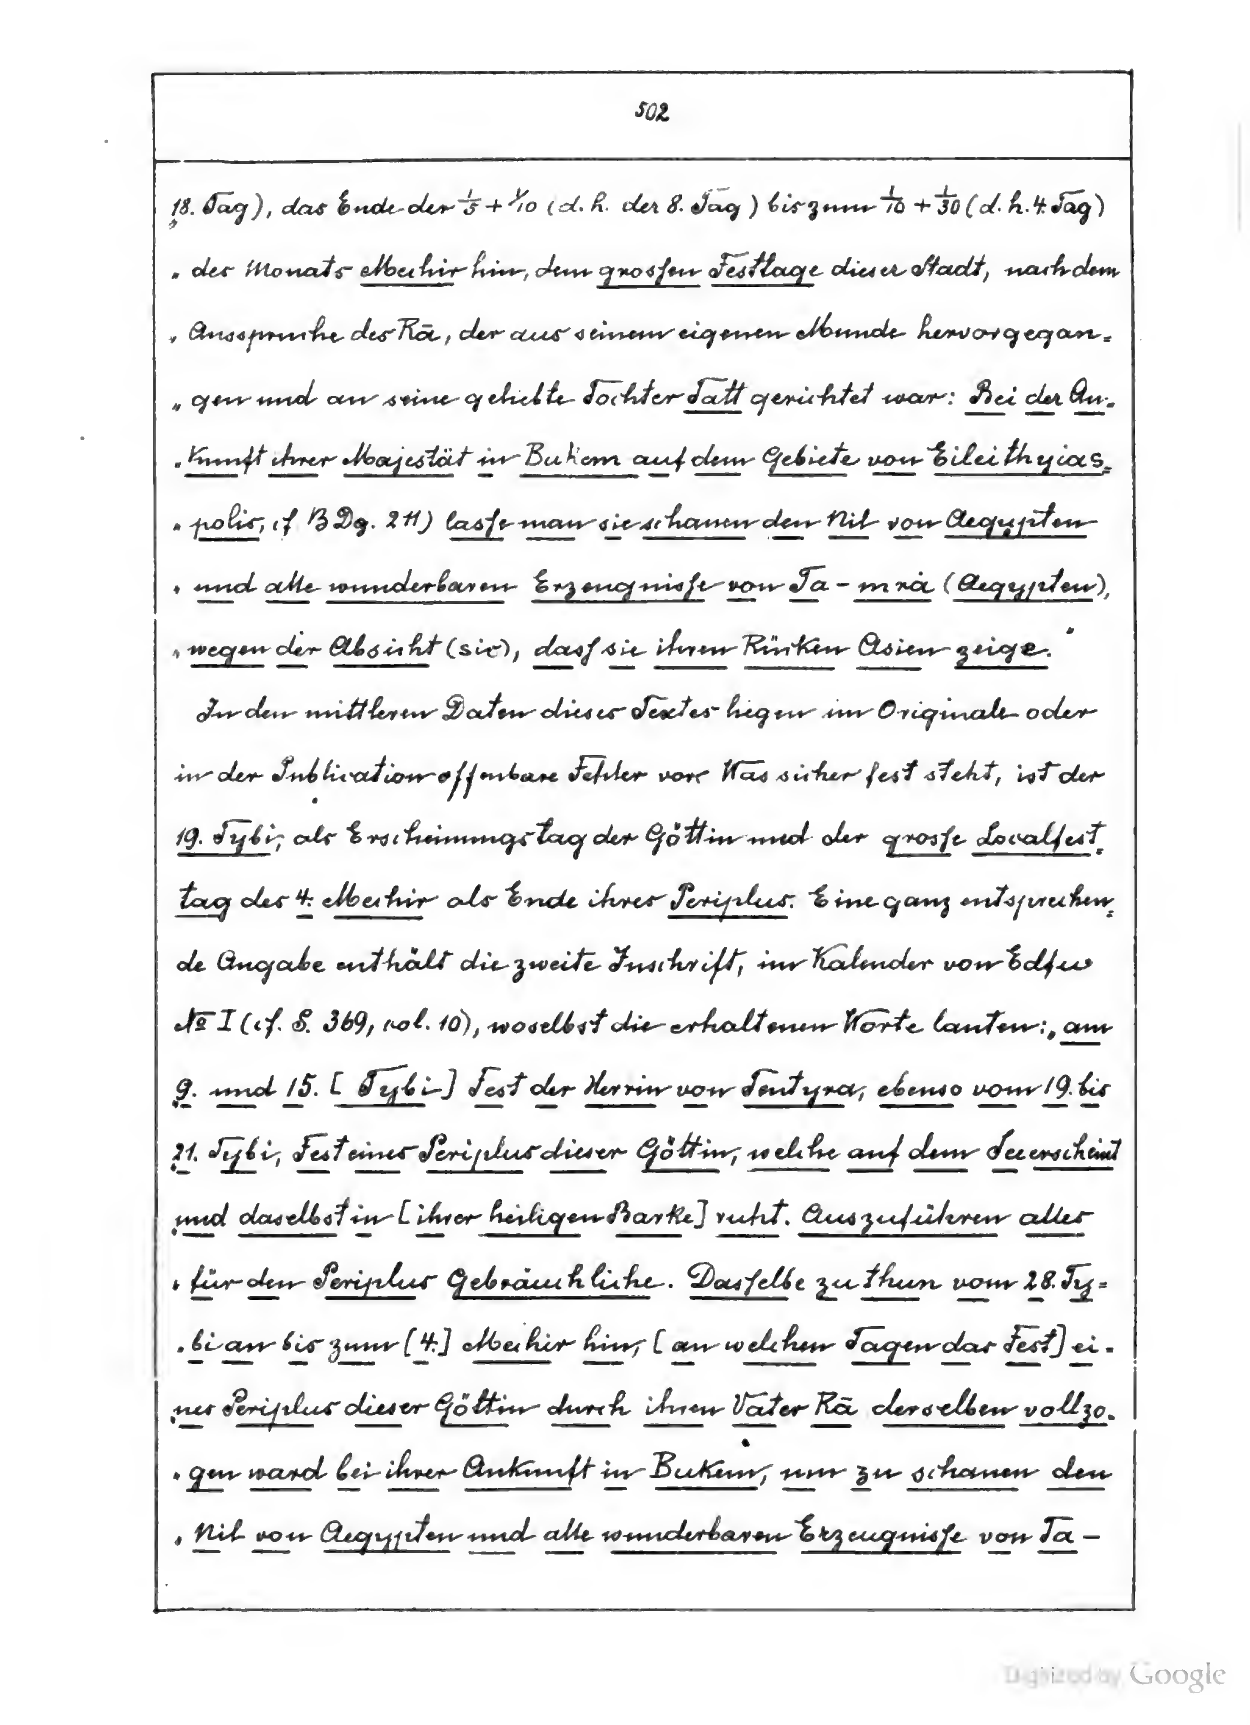 502
„18. Tag), das Ende der 1/5 + 1/10 (d. h. der 8. Tag) bis zum 1/10 + 1/30 (d. h. 4. Tag)
„ des Monats Mechir hin, dem grossen Festtage dieser Stadt, nach dem
„ Ausspruche des Rā, der aus seinem eigenen Munde hervorgegan-
„ gen und an seine geliebte Tochter Tatt gerichtet war: Bei der An-
„ kunft ihrer Majestät in Bukem auf dem Gebiete von Eileithyias-
„ polis, cf BDg. 211) lasse man sie schauen den Nil von Aegypten
„ und alle wunderbaren Erzeugnisse von Ta-mrà (Aegypten),
„ wegen der Absicht (sic), dass sie ihren Rücken Asien zeige.“
In den mittleren Daten dieses Textes liegen im Originale oder
in der Publication offenbare Fehler vor. Was sicher fest steht, ist der
19. Tybi, als Erscheinungstag der Göttin und der grosse Localfest-
tag des 4. Mechir als Ende ihres Periplus. Eine ganz entsprechen-
de Angabe enthält die zweite Inschrift, im Kalender von Edfu
No I (cf. S. 369, col. 10), woselbst die erhaltenen Worte lauten: „am
„9. und 15. [Tybi] Fest der Herrin von Tentyra, ebenso vom 19. bis
„21. Tybi, Fest eines Periplus dieser Göttin, welche auf dem See erscheint
„und daselbst in [ihrer heiligen Barke] ruht. Auszuführen alles
„ für den Periplus Gebräuchliche. Dasselbe zu thun vom 28. Ty-
„ bi an bis zum [4.] Mechir hin, [an welchen Tagen das Fest] ei-
„nes Periplus dieser Göttin durch ihren Vater Rā derselben vollzo-
„ gen ward bei ihrer Ankunft in Bukem, um zu schauen den
„ Nil von Aegypten und alle wunderbaren Erzeugnisse von Ta-
Digitized by Google